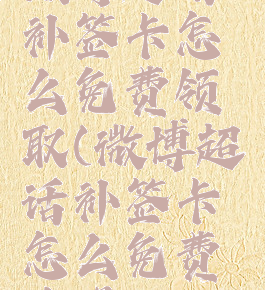 补签卡怎
么免费领
取(微博超
话补签卡
怎么免费